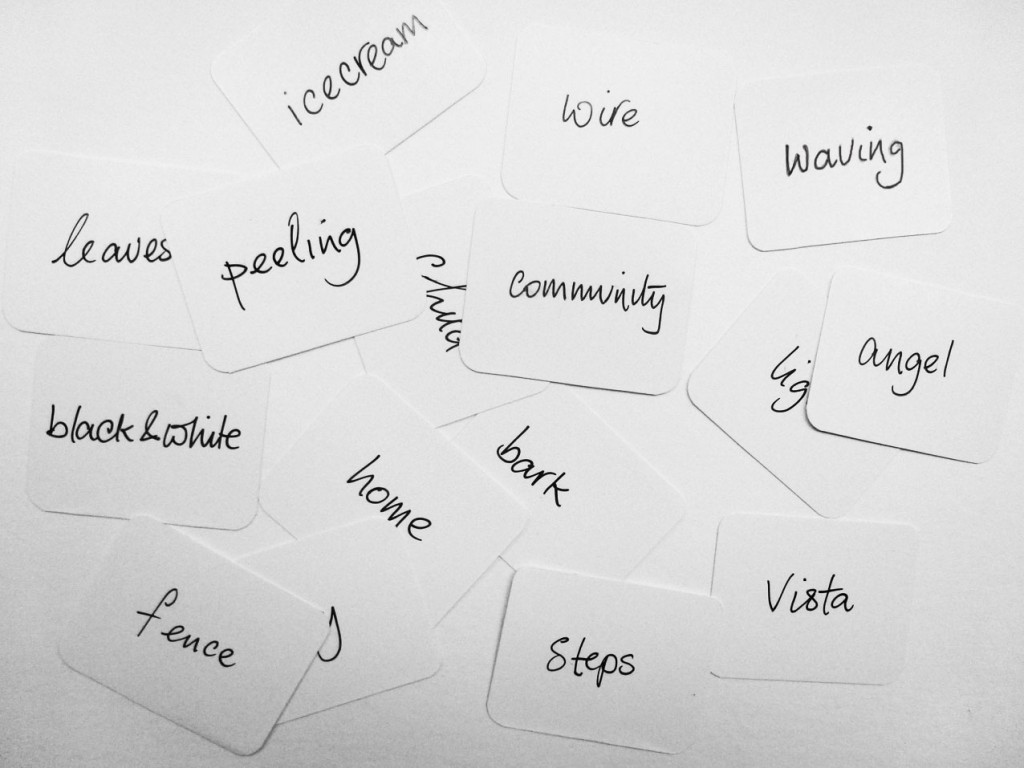 icecream
wire
waving
leaves
peeling
community
angel
black&white
home
bark
fence
Steps
Vista